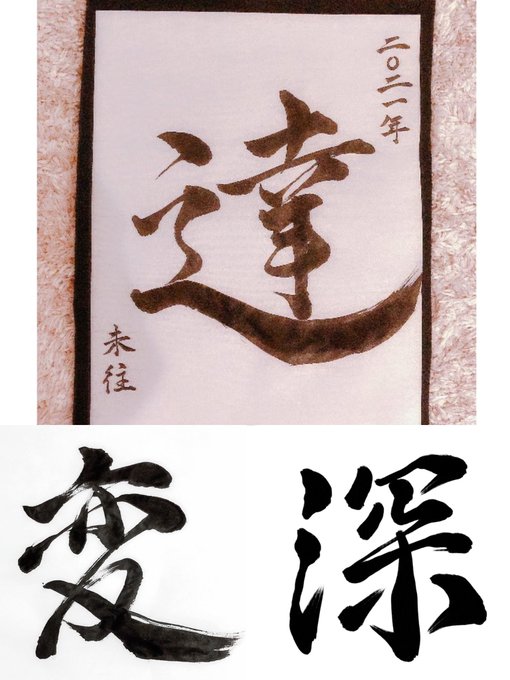 二〇二一年
達
未往
変
深